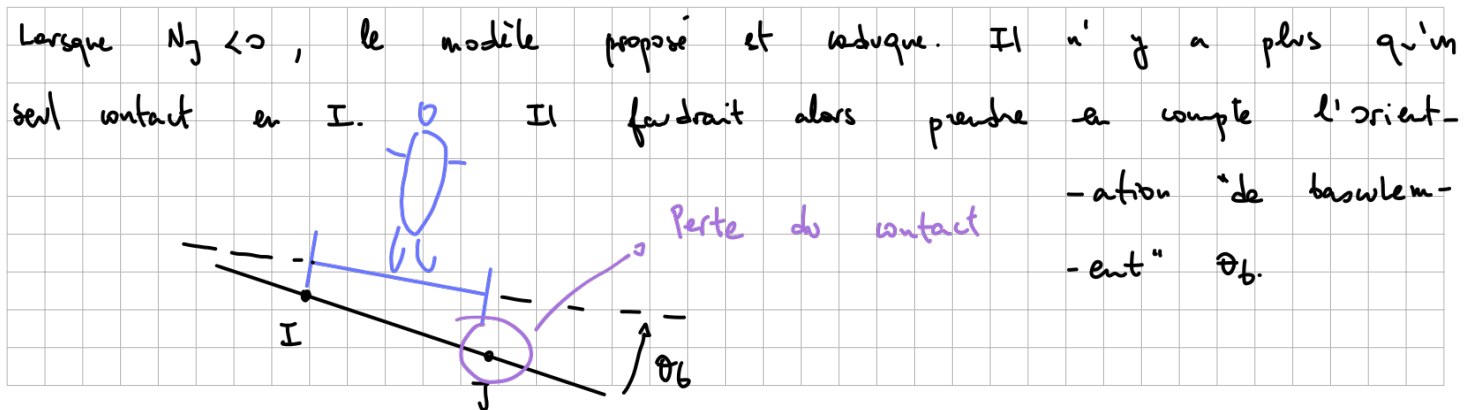 Lorsque NJ <0, le modèle proposé est caduque. Il n'y a plus qu'un
seul contact en I. Il faudrait alors prendre en compte l'orient-
-ation "de basculem-
-ent" θb.
Perte du contact
I
J
θb